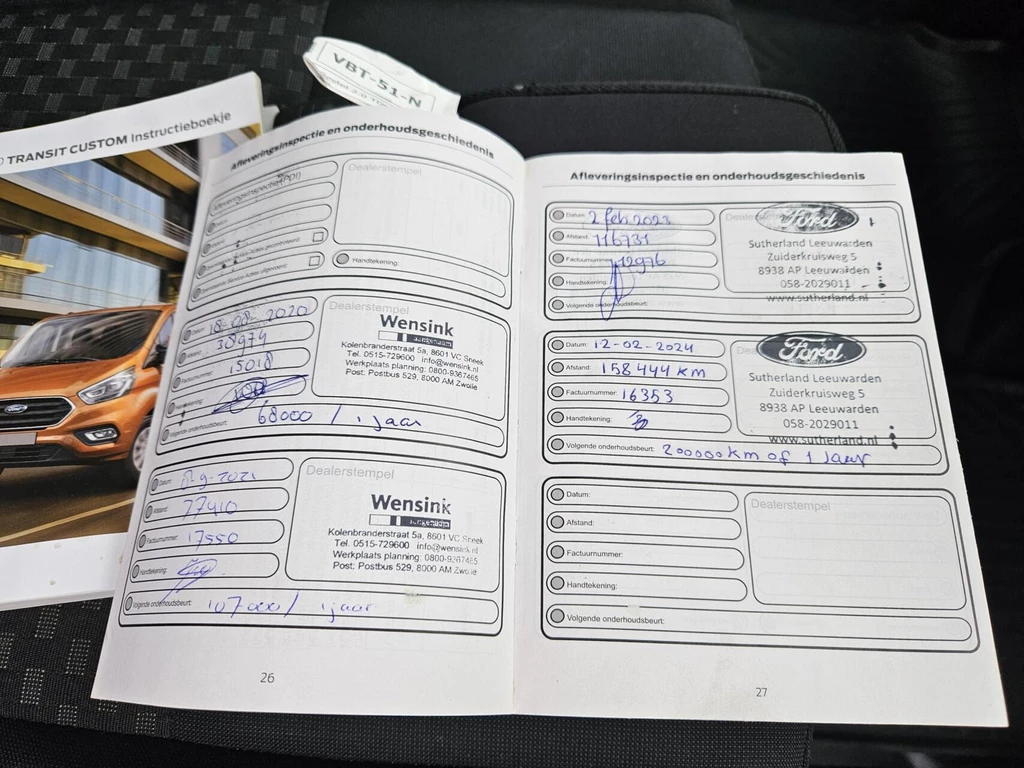 VBT-51-N
TRANSIT CUSTOM Instructieboekje
Afleveringsinspectie en onderhoudsgeschiedenis
Afleveringsinspectie (PDI)
Dealerstempel
Handtekening:
Datum: 18-08-2020
38974
Factuurnummer: 15018
Handtekening:
Volgende onderhoudsbeurt: 68000 / 1 jaar
Dealerstempel
Wensink
Kolenbranderstraat 5a, 8601 VC Sneek
Tel. 0515-729600 info@wensink.nl
Werkplaats planning: 0800-9367465
Post: Postbus 529, 8000 AM Zwolle
Datum: 9-2021
Afstand: 77410
Factuurnummer: 17550
Handtekening:
Volgende onderhoudsbeurt: 107000 / 1 jaar
Dealerstempel
Wensink
Kolenbranderstraat 5a, 8601 VC Sneek
Tel. 0515-729600 info@wensink.nl
Werkplaats planning: 0800-9367465
Post: Postbus 529, 8000 AM Zwolle
26
Afleveringsinspectie en onderhoudsgeschiedenis
Datum: 2 feb 2023
Afstand: 116731
Factuurnummer: 12976
Handtekening:
Volgende onderhoudsbeurt:
Ford
Sutherland Leeuwarden
Zuiderkruisweg 5
8938 AP Leeuwarden
058-2029011
www.sutherland.nl
Datum: 12-02-2024
Afstand: 158444 km
Factuurnummer: 16353
Handtekening:
Volgende onderhoudsbeurt: 200000 km of 1 Jaar
Ford
Sutherland Leeuwarden
Zuiderkruisweg 5
8938 AP Leeuwarden
058-2029011
www.sutherland.nl
Datum:
Afstand:
Factuurnummer:
Handtekening:
Volgende onderhoudsbeurt:
Dealerstempel
27